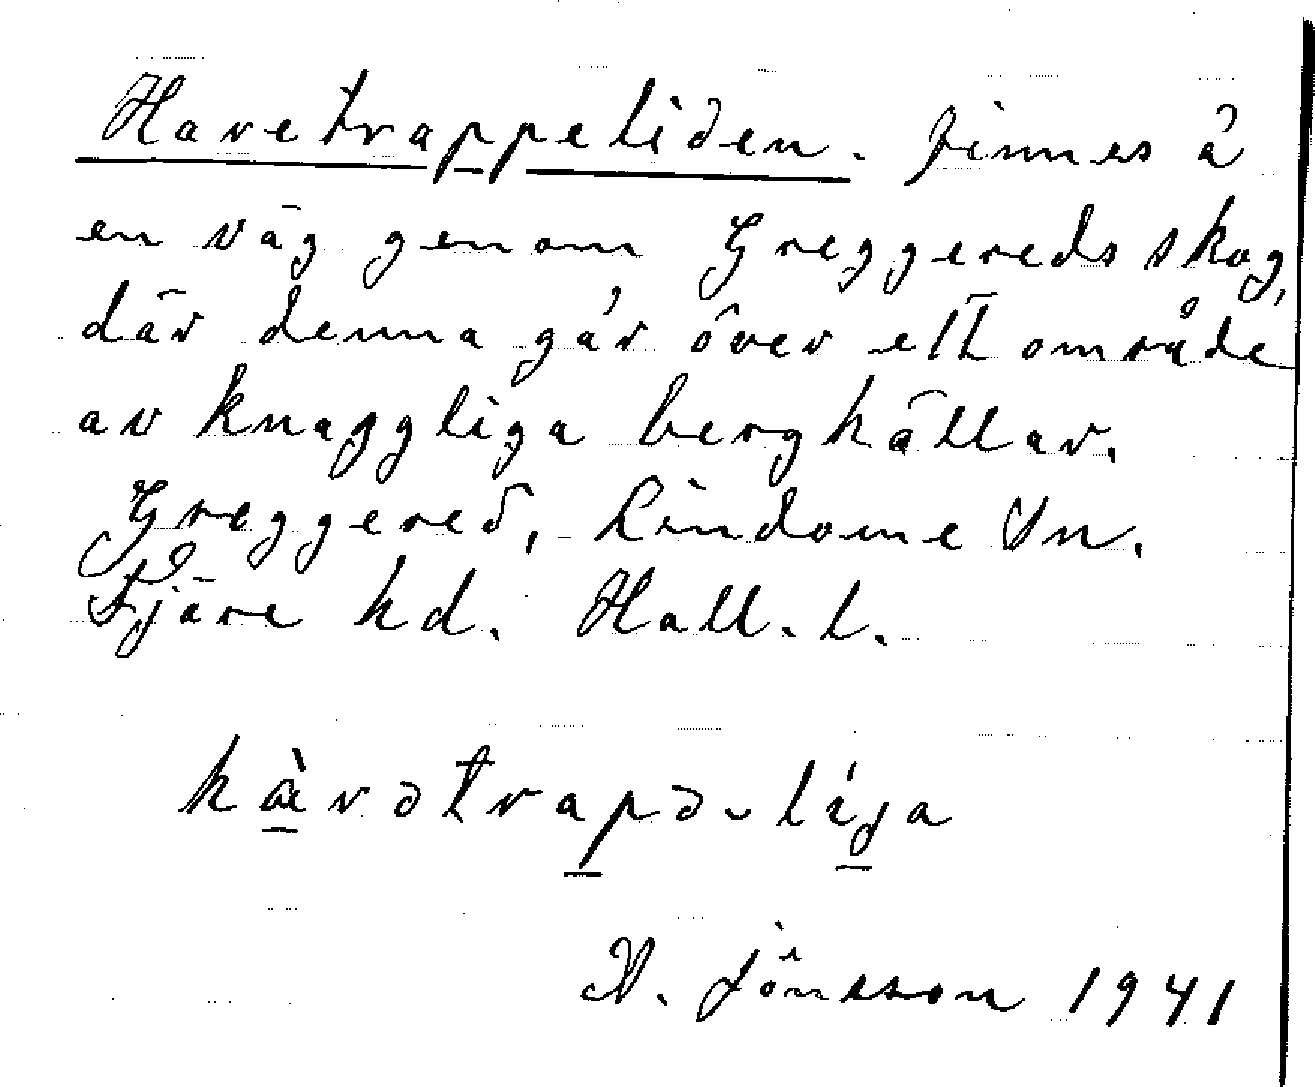 Havetrappeliden. Finnes å
en väg genom Greggereds skog,
där denna går över ett område
av knaggliga berghällar.
Greggered, Lindome Sn.
Fjäre hd. Hall. l.
N. Jönsson 1941